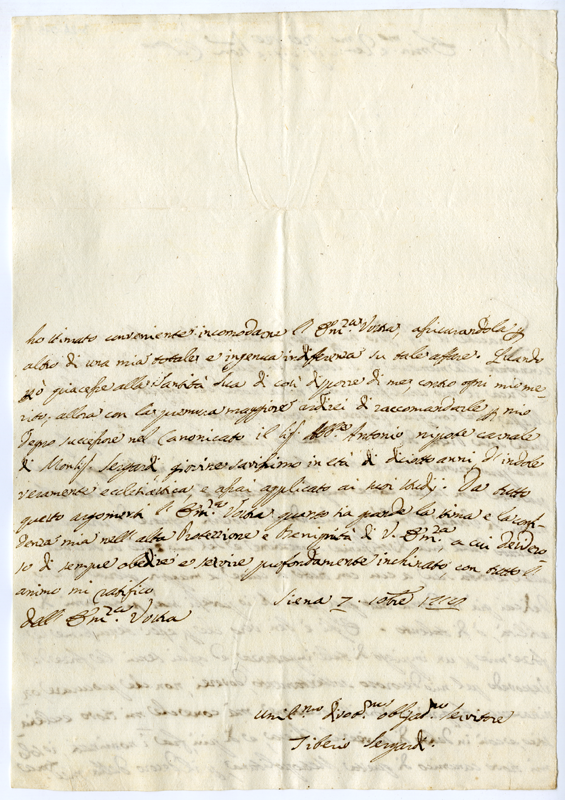 ho stimato conveniente incomodarne l' Em.za Vostra, assicurandola p
altro di una mia totale e ingenua indifferenza su tale affare. Quando
però piacesse alla Santità Sua di così disporre di me contro ogni mio me-
rito, allora con la premura maggiore ardirei di raccomandarle p mio
degno successore nel Canonicato il Sig. Antonio nipote carnale
di Monsig. Sergardi giovine savissimo in età di diciott'anni, d'indole
veramente ecclesiastica e assai applicato ai suoi studj. Da tutto
questo argomenti l' Em.za Vostra quanto sia grande la stima e la confi-
denza mia nell' alta Protezione e Benignità di V. Em.za a cui desidero-
so di sempre obedire e servire profondamente inchinato con tutto l'
animo mi ratifico
dall' Em.za Vostra Siena 7. 8bre
Umil.mo devot.mo obbligat.mo Servitore
Tiberio Sergardi